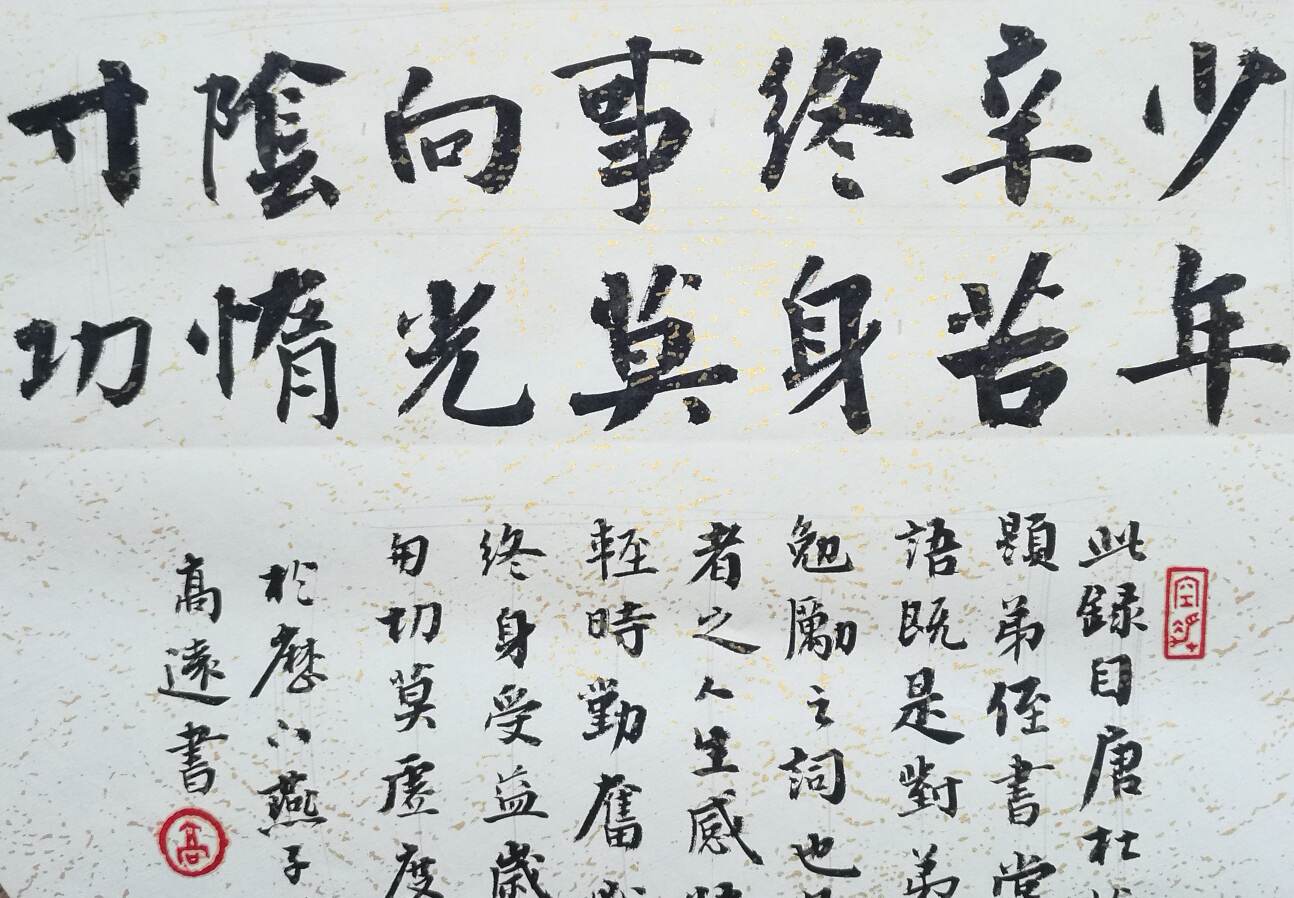 少年
辛苦
終身
事莫
向光
陰惰
寸功
此録自唐杜
題弟侄書堂
語既是對弟
勉勵之詞也
者之人生感
輕時勤奮
終身受益歲
匆切莫虛度
於歷下燕子
高遠書
高